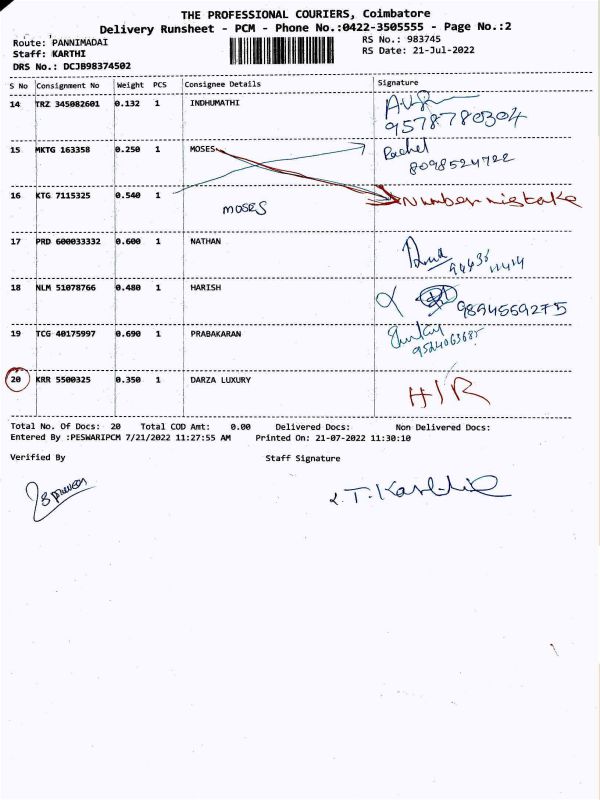 THE PROFESSIONAL COURIERS, Coimbatore
Delivery Runsheet - PCM - Phone No.:0422-3505555 - Page No.:2
Route: PANNIMADAI
RS No.: 983745
Staff: KARTHI
RS Date: 21-Jul-2022
DRS No.: DCJB98374502
S No Consignment No Weight PCS Consignee Details Signature
14 TRZ 345082601 0.132 1 INDHUMATHI
9578780304
15 MKTG 163358 0.250 1 MOSES Rachel
8098524722
16 KTG 7115325 0.540 1 Number mistake
MOSES
17 PRD 600033332 0.600 1 NATHAN
18 NLM 51078766 0.480 1 HARISH
9894559275
19 TCG 40175997 0.690 1 PRABAKARAN
9524063685
20 KRR 5500325 0.350 1 DARZA LUXURY H/R
Total No. Of Docs: 20 Total COD Amt: 0.00 Delivered Docs: Non Delivered Docs:
Entered By :PESWARIPCM 7/21/2022 11:27:55 AM Printed On: 21-07-2022 11:30:10
Verified By Staff Signature